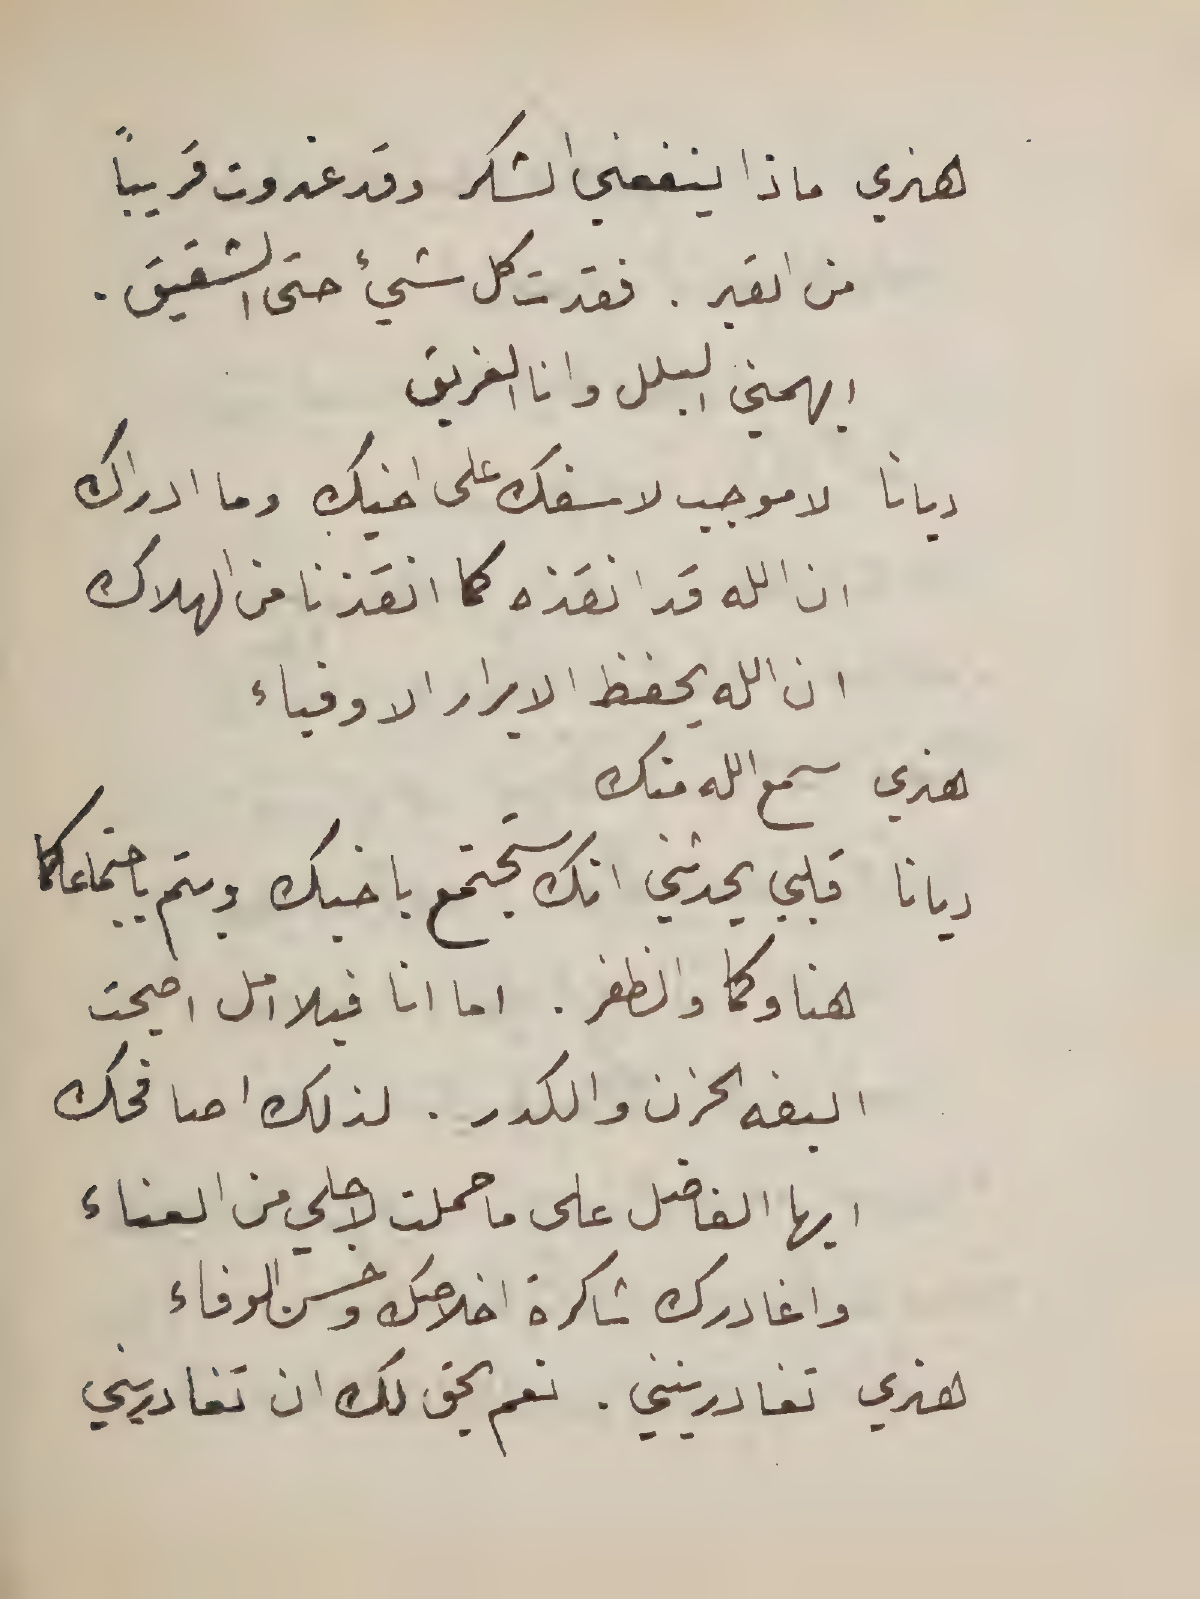 هنري ماذا ينفعني الشكر وقد غدوت قريباً
من القبر . فقدت كل شيء حتى الشقيق .
ايهمني البلل وانا الغريق
ديانا لا موجب لاسفك على اخيك وما ادراك
ان الله قد انقذه كما انقذنا من الهلاك
ان الله يحفظ الابرار الاوفياء
هنري سمع الله منك
ديانا قلبي يحدثني انك ستجتمع باخيك ويتم باجتماعكما
هناوكما والظفر . اما انا فبلا امل اصبحت
اليفه الحزن والكدر . لذلك اصافحك
ايها الفاضل على ما حملت لاجلي من العناء
واغادرك شاكرة اخلاصك وحسن الوفاء
هنري تغادرينني . نعم يحق لك ان تغادريني